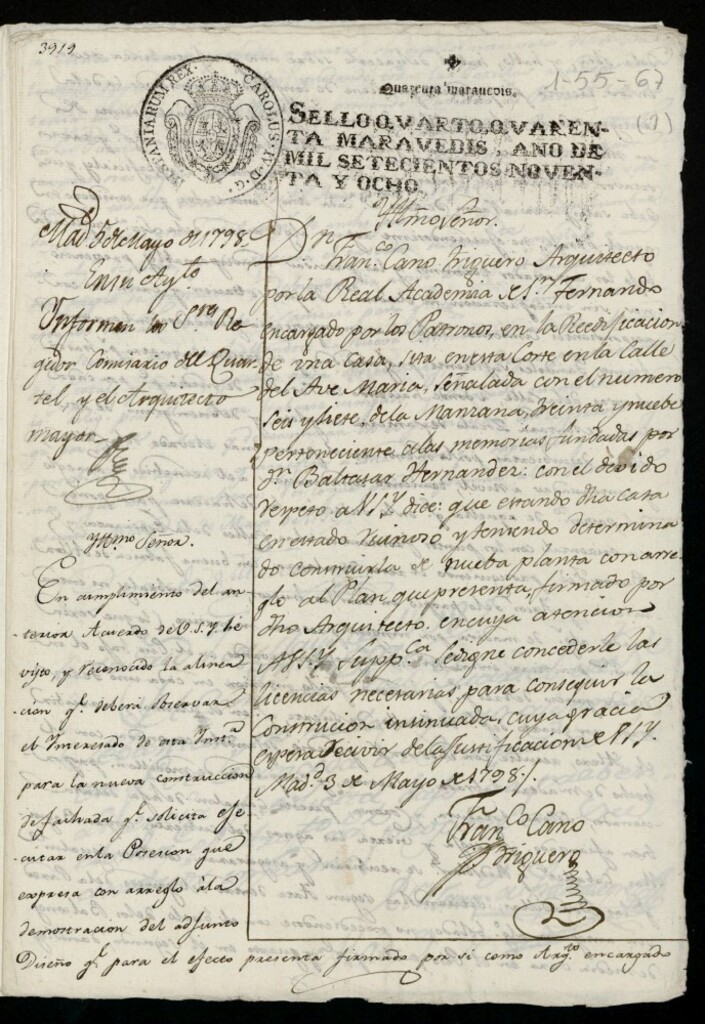 3919
CAROLUS IV D. G. HISPANIARUM REX.
Quarenta marauedis.
1-55-67
(1)
SELLO QVARTO, QVAREN-
TA MARAVEDIS, ANO DE
MIL SETECIENTOS NOVEN-
TA Y OCHO.
Mad. 5 de Mayo de 1798.
En su Ayto
Informen los Sres Re-
gidor Comisario del Quar-
tel, y el Arquitecto
mayor
Yllmo Señor.
En cumplimiento del an-
terior Acuerdo de V.S.Y. he
visto, y reconocido la alinea
cion q.e deberá observar
el Interesado de esta Inst.a
para la nueva construccion
de fachada q.e solicita efe-
cutar en la Posesion que
expresa con arreglo àla
demostracion del adjunto
Diseño q.e para el efecto presenta firmado por si como Arq.to encargado
Yllmo señor.
Dn
Fran.co Cano Triguero Arquitecto
por la Real Academia de Sn Fernando
encargado por los Patronos, en la Reedificacion
de una casa, sita en esta Corte en la Calle
del Ave Maria, señalada con el numero
seis y siete, de la Manzana, treinta y nuebe
perteneciente alas memorias fundadas por
dn Baltasar Hernandez: con el devido
respeto a VSY dice: que estando dha casa
en estado ruinoso y teniendo determina
do construirla de nueba planta con arre-
glo al Plan que presenta, firmado por
dho Arquitecto. en cuya atencion
AVSY Supp.ca se digne concederle las
licencias necesarias para conseguir la
Construcion insinuada, cuya gracia
espera recivir de la Justificacion de VSY.
Mad.d 3 de Mayo de 1798.
Fran.co Cano
Triguero